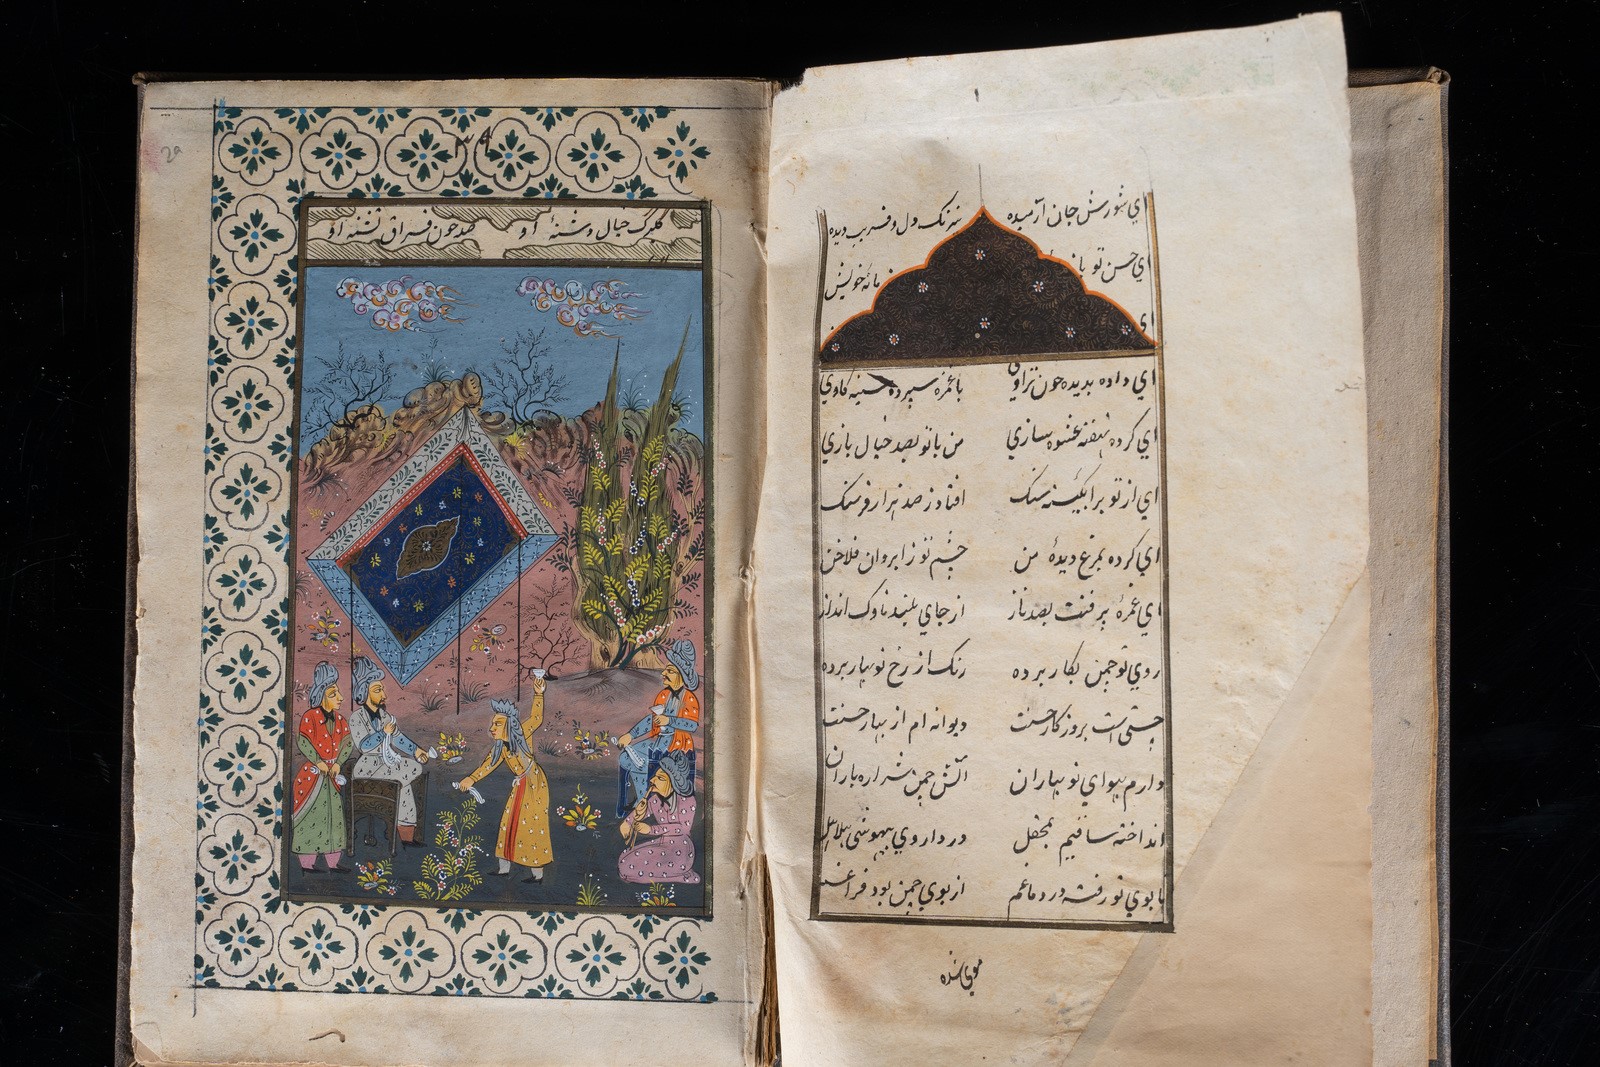 ای شورش جان آرمیده
نیرنگ دل و فریب دیده
ای حسن تو با
مانهٔ خویش
ای
ای داده بدیده خون تراوی
با غمزه سپرده سینه کاوی
ای کرده بفتنه عشوه سازی
من با تو بصد خیال بازی
ای از تو بر آبگینه سنگ
افتاد ز صد هزار فرسنگ
ای کرده بمرغ دیدهٔ من
چشم تو ز ابروان فلاخن
ای غمزهٔ پر فنت بصد ناز
از جای بلند ناوک انداز
روی تو چمن بکار برده
رنگ از رخ نوبهار برده
چشمی است بروزگار حسنت
دیوانه ام از بهار حسنت
دارم بهوای نوبهاران
آتش چمن شراره باران
انداخته ساقیم بمحفل
در داروی بیهوشی هلاهل
با بوی تو رفته در دماغم
از بوی چمن بود فراغم
موی شده
۳۹
29
گلبرگ خیال دشنهٔ او
صد خون فراق تشنهٔ او